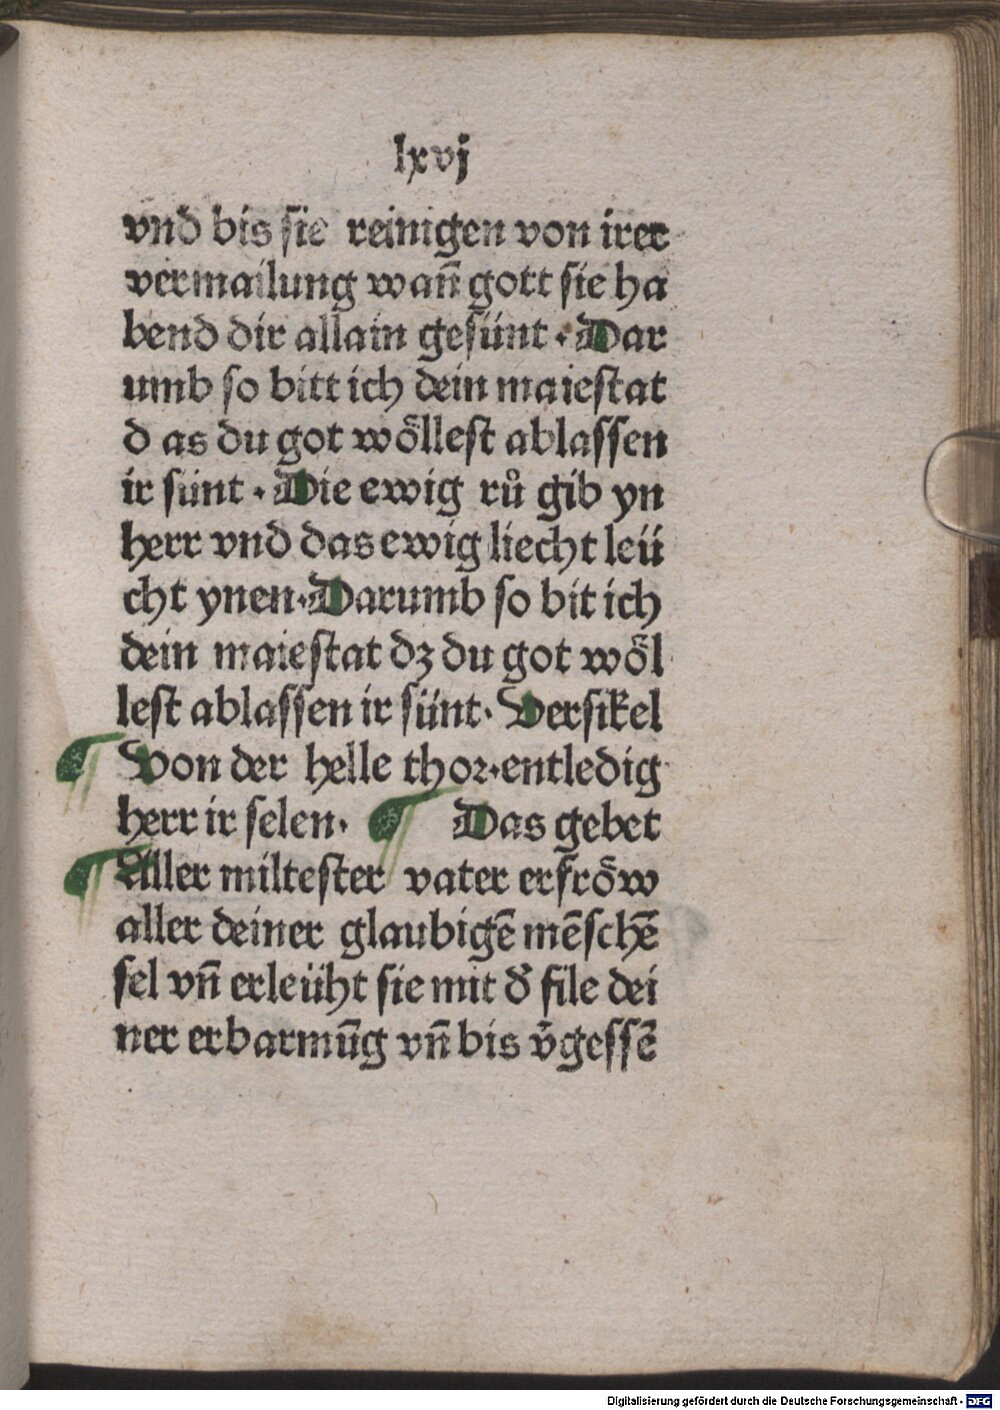 lxvj
vnd bis sie reinigen von irer
vermailung wañ gott sie ha
bend dir allain gesünt · Dar
umb so bitt ich dein maiestat
d as du got wo᷑llest ablassen
ir sünt · Die ewig rů gib yn
herr vnd das ewig liecht leü
cht ynen · Darumb so bit ich
dein maiestat dz du got wo᷑l
lest ablassen ir sünt · Versikel
¶ Von der helle thor · entledig
herr ir selen · ¶ Das gebet
¶ Aller miltester vater erfröw
aller deiner glaubigē mēschē
sel vñ erleüht sie mit d᷑ file dei
ner erbarmūg vñ bis v᷑gessē
Digitalisierung gefördert durch die Deutsche Forschungsgemeinschaft - DFG